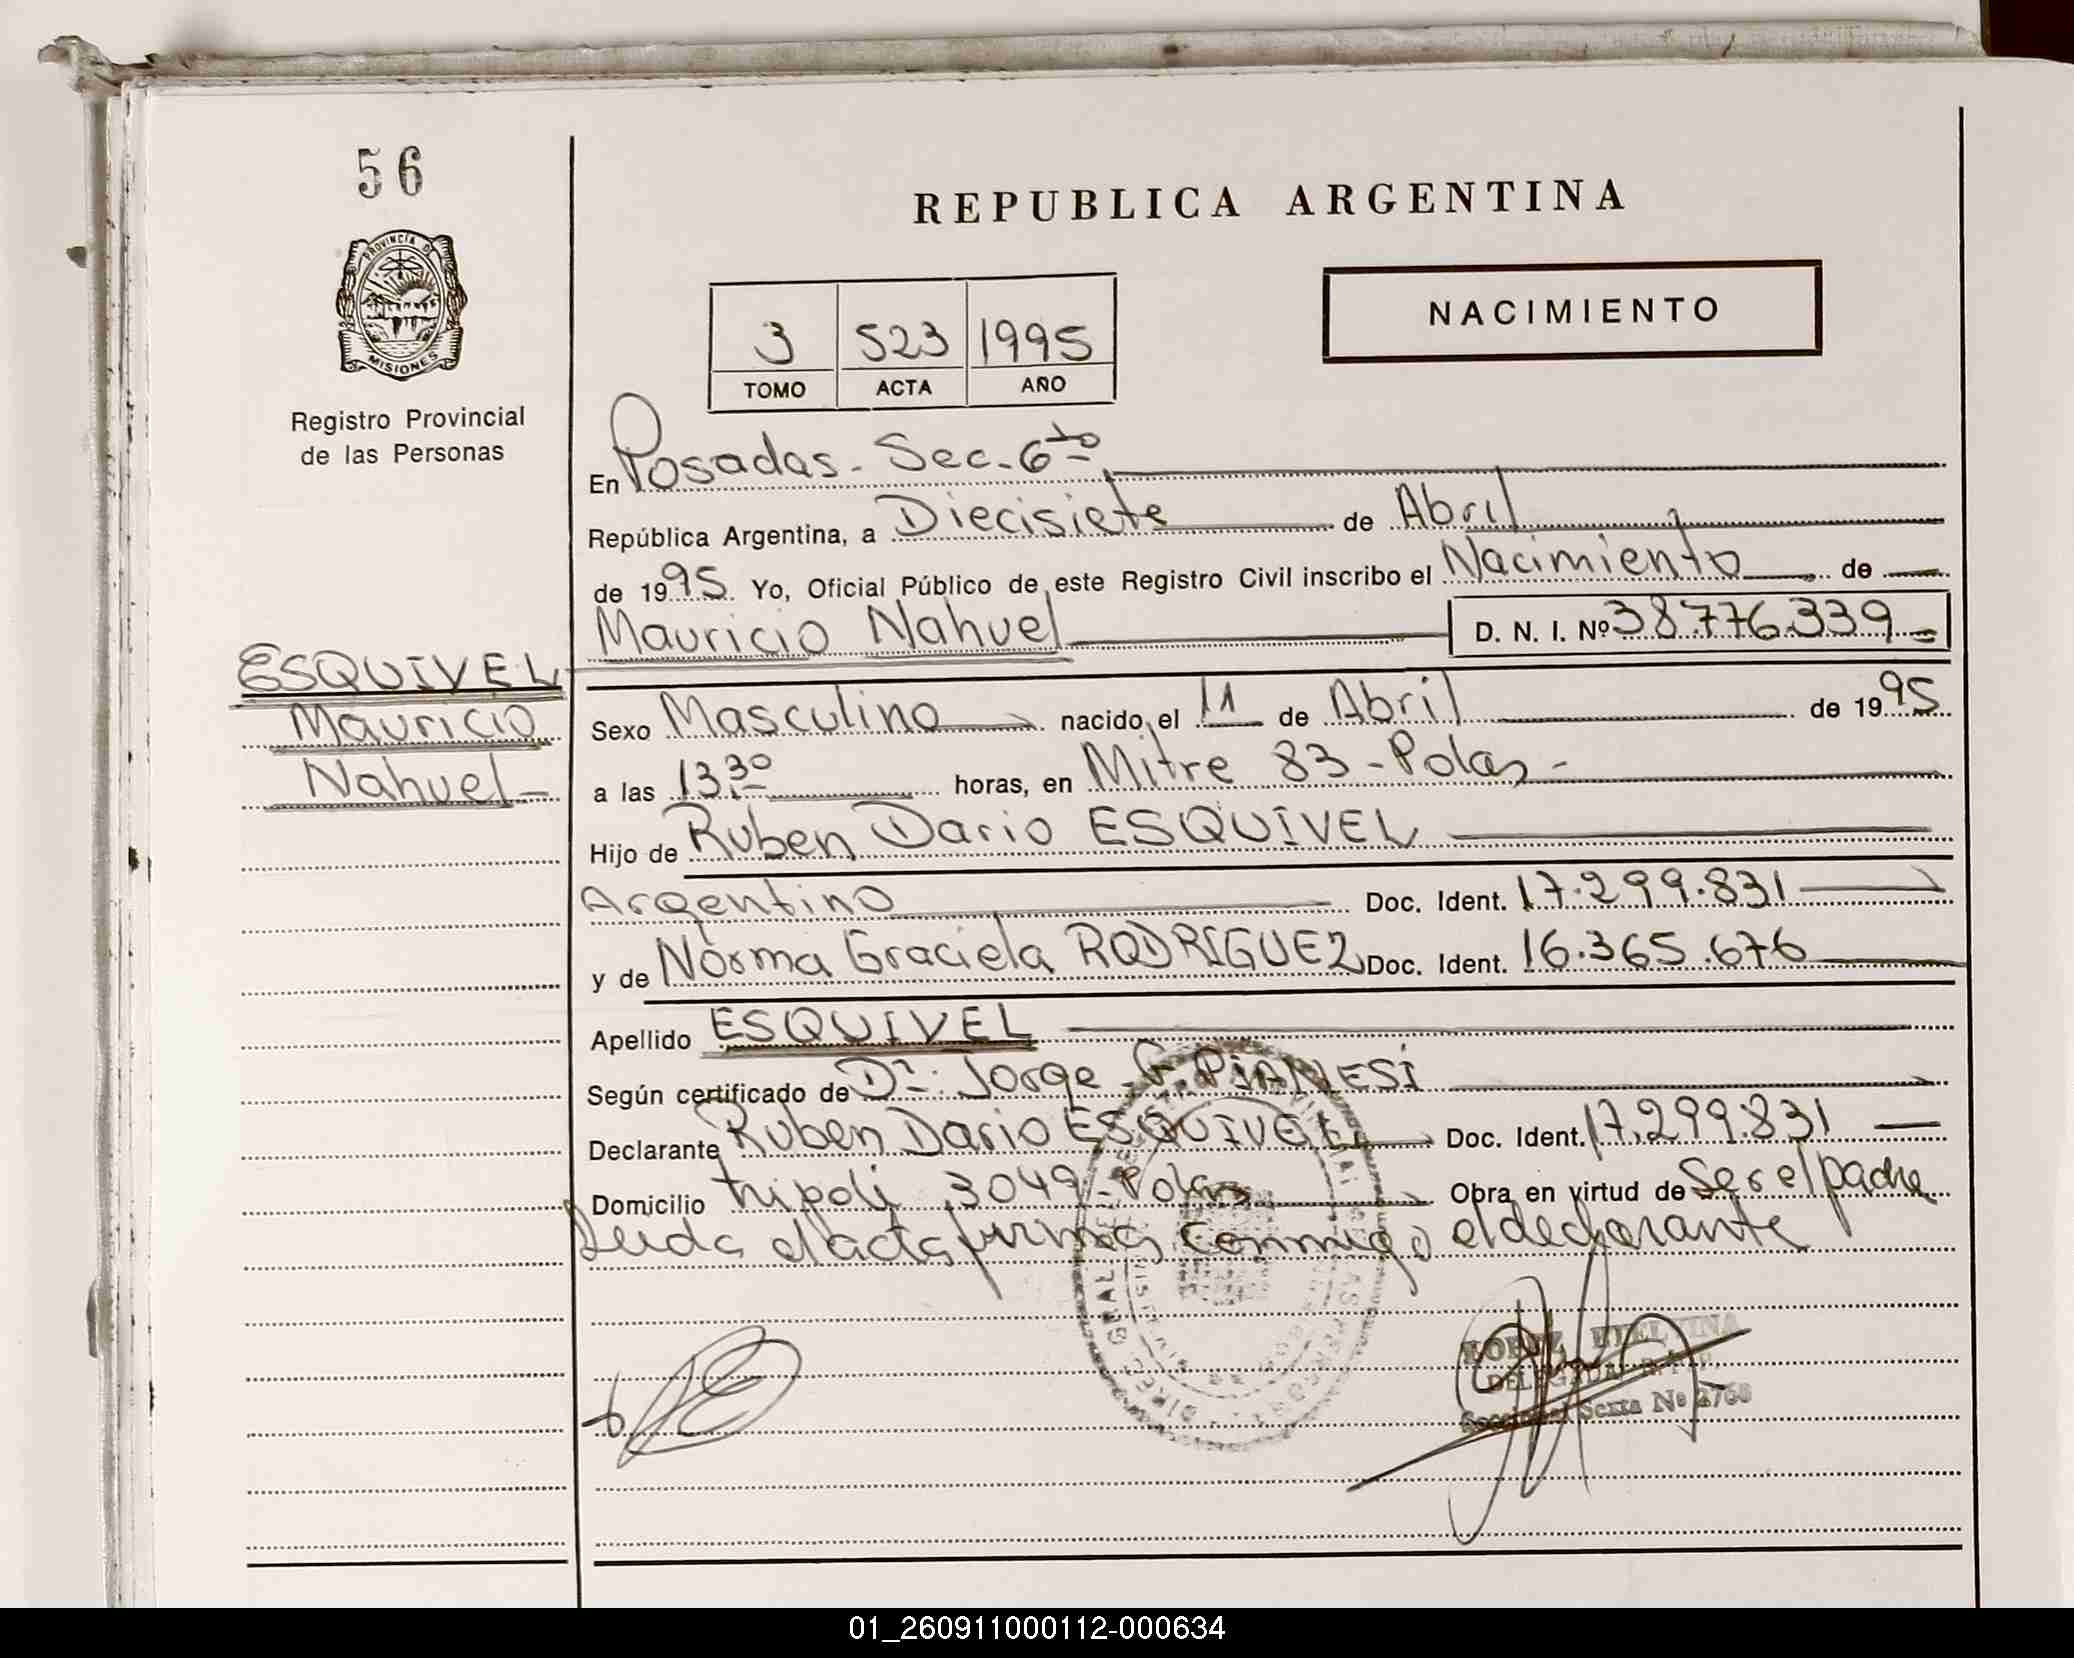 56
PROVINCIA DE
MISIONES
Registro Provincial
de las Personas
REPUBLICA ARGENTINA
NACIMIENTO
3 523 1995
TOMO ACTA AÑO
En Posadas - Sec. 6ta
República Argentina, a Diecisiete de Abril
de 1995 Yo, Oficial Público de este Registro Civil inscribo el Nacimiento de
Mauricio Nahuel D. N. I. Nº 38.776.339
ESQUIVEL
Mauricio
Nahuel
Sexo Masculino nacido el 11 de Abril de 1995
a las 13.30 horas, en Mitre 83 - Pdas -
Hijo de Ruben Dario ESQUIVEL
Argentino Doc. Ident. 17.299.831
y de Norma Graciela RODRIGUEZ Doc. Ident. 16.365.676
Apellido ESQUIVEL
Según certificado de Dr. Jorge G. PIANESI
Declarante Ruben Dario ESQUIVEL Doc. Ident. 17.299.831
Domicilio tripoli 3049 - Pdas Obra en virtud de Ser el padre
Leida el acta firma conmigo el declarante
DELEGADA
Seccional Sexta Nº 2760
01_260911000112-000634